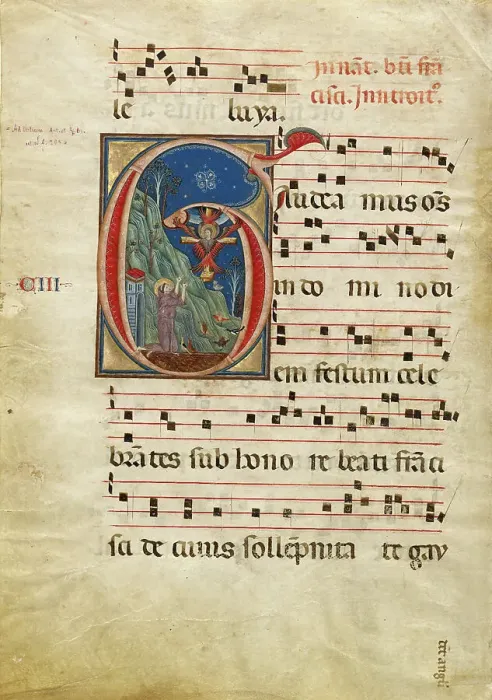 In nāt. bti frā
cisci. Introit.
le luya.
Gaudea mus oēs
CIII
in do mi no di
em festum cele
brātes sub hono re beati frāci
sci de cuius sollēpnita te gau